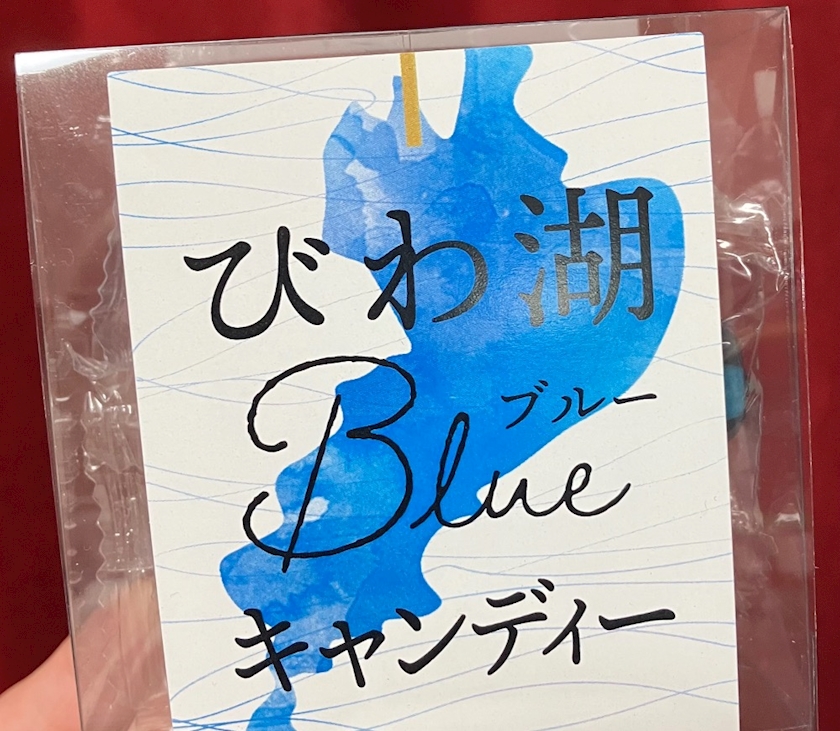 びわ湖
ブルー
Blue
キャンディー